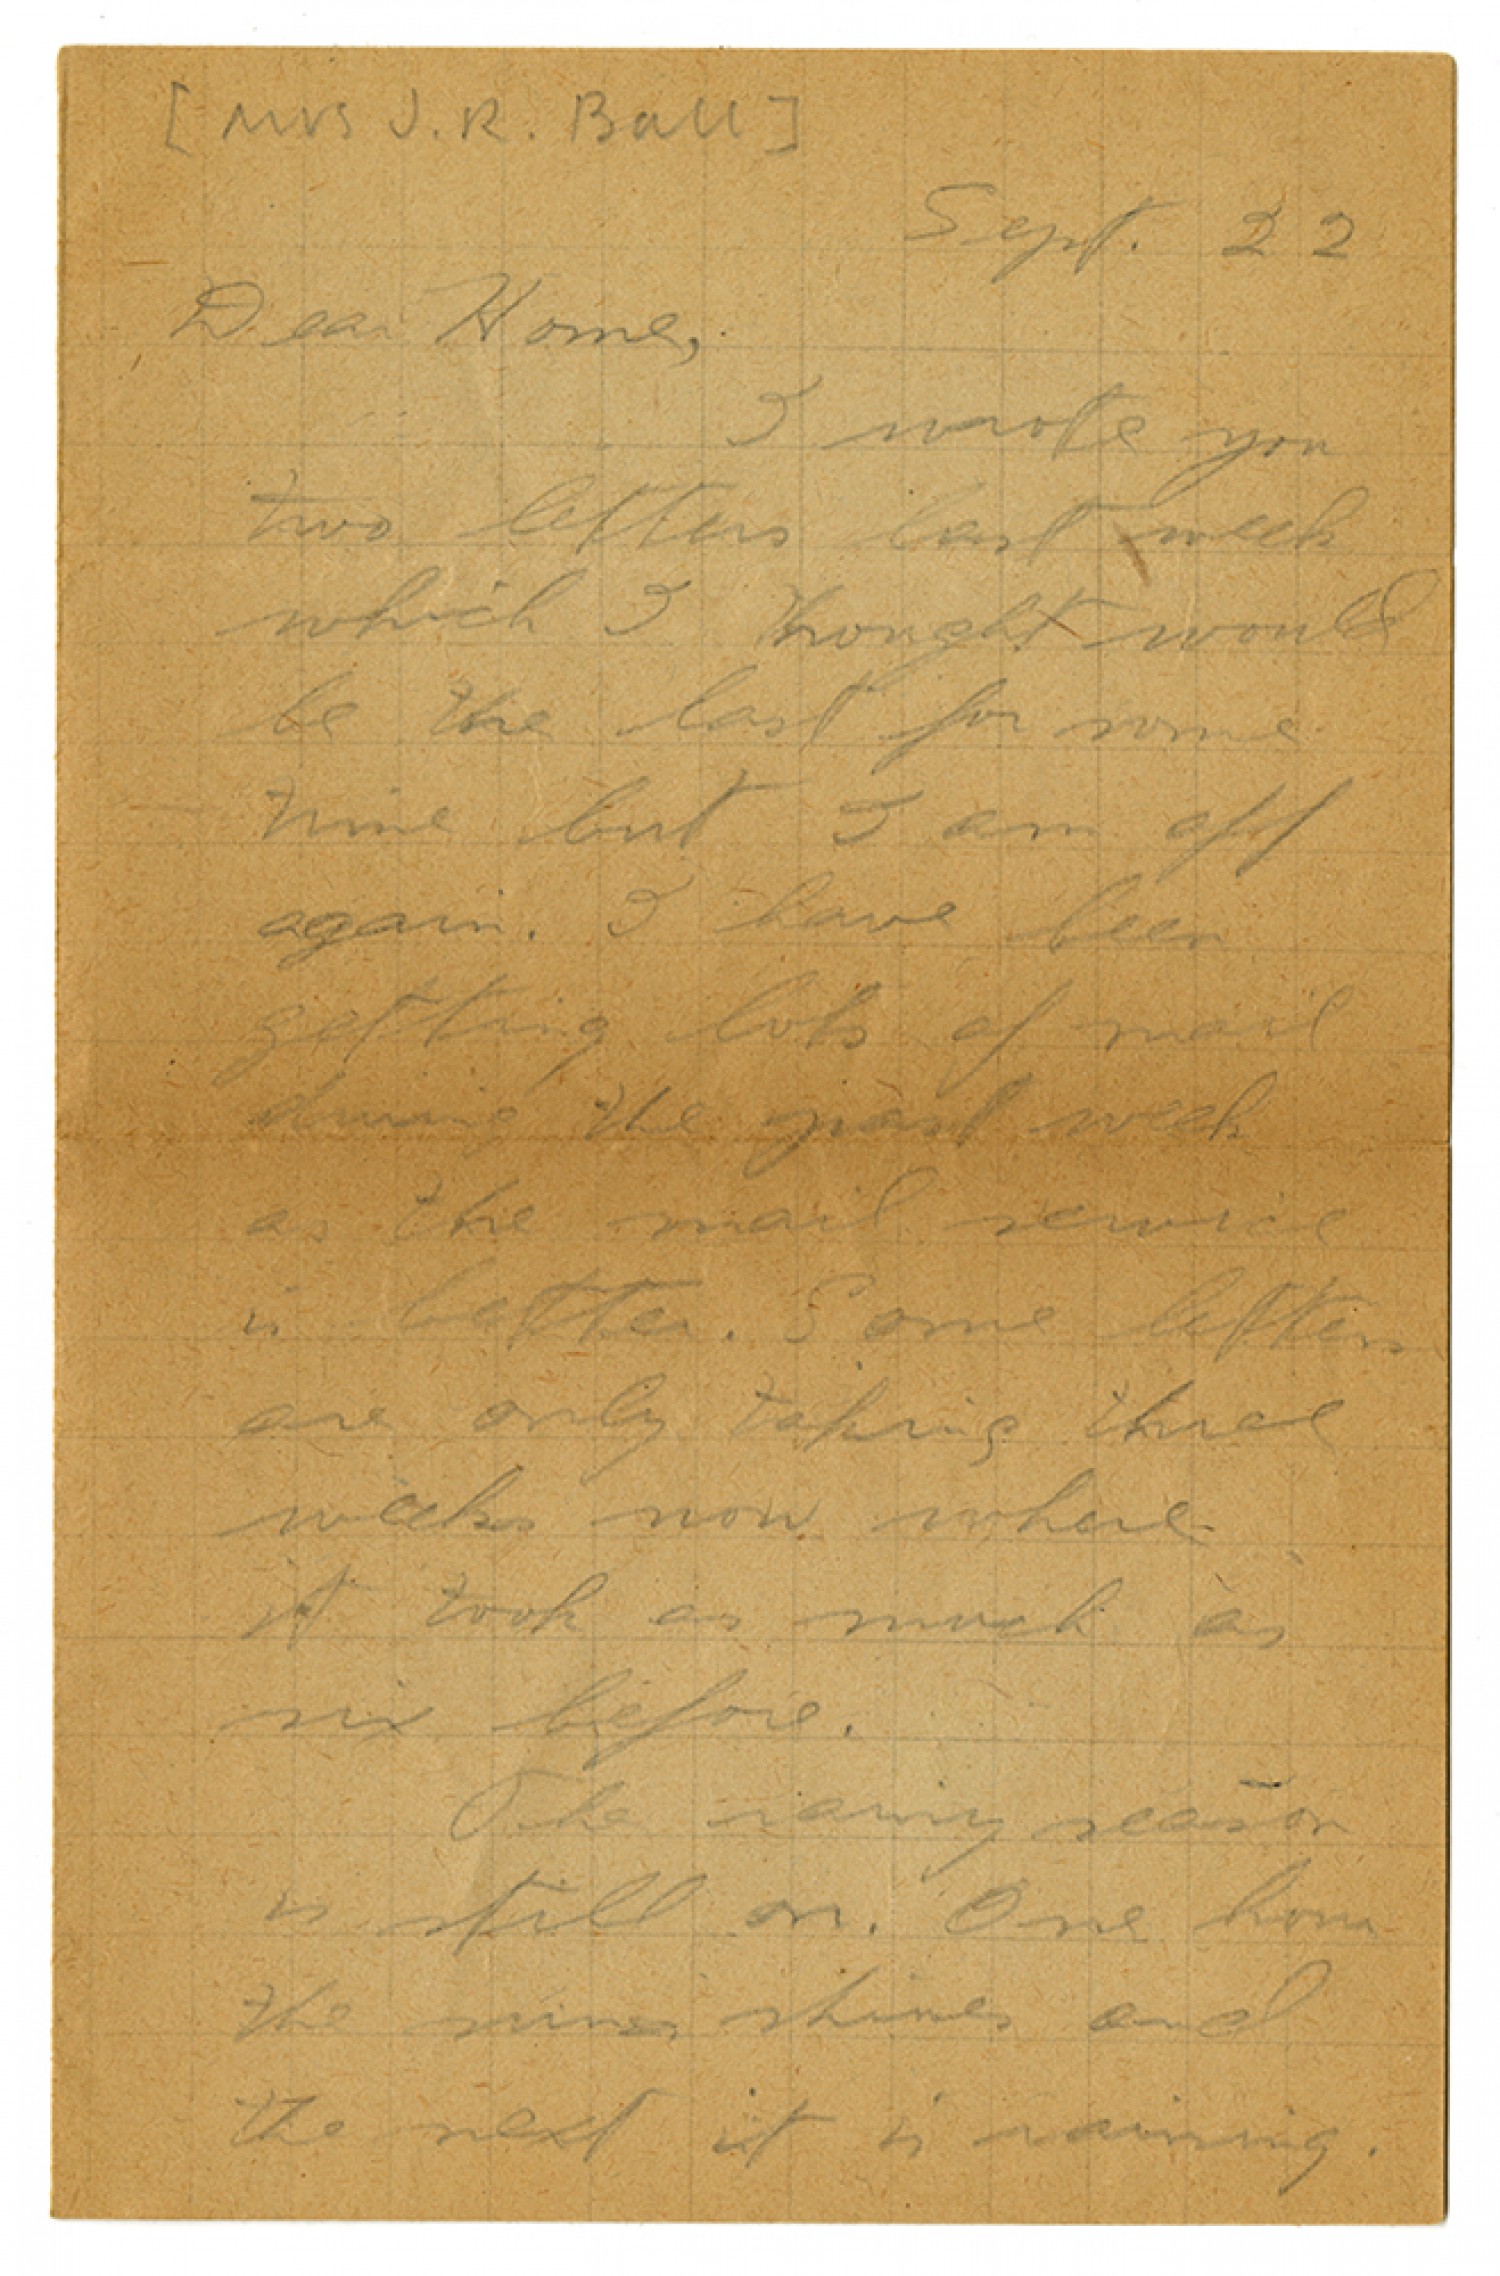 [Mrs J. R. Ball]
Sept. 22
Dear Home,
I wrote you
two letters last week
which I thought would
be the last for some
time but I am off
again. I have been
getting lots of mail
during the past week
as the mail service
is better. Some letters
are only taking three
weeks now where
it took as much as
six before.
The rainy season
is still on. One hour
the sun shines and
the next it is raining.